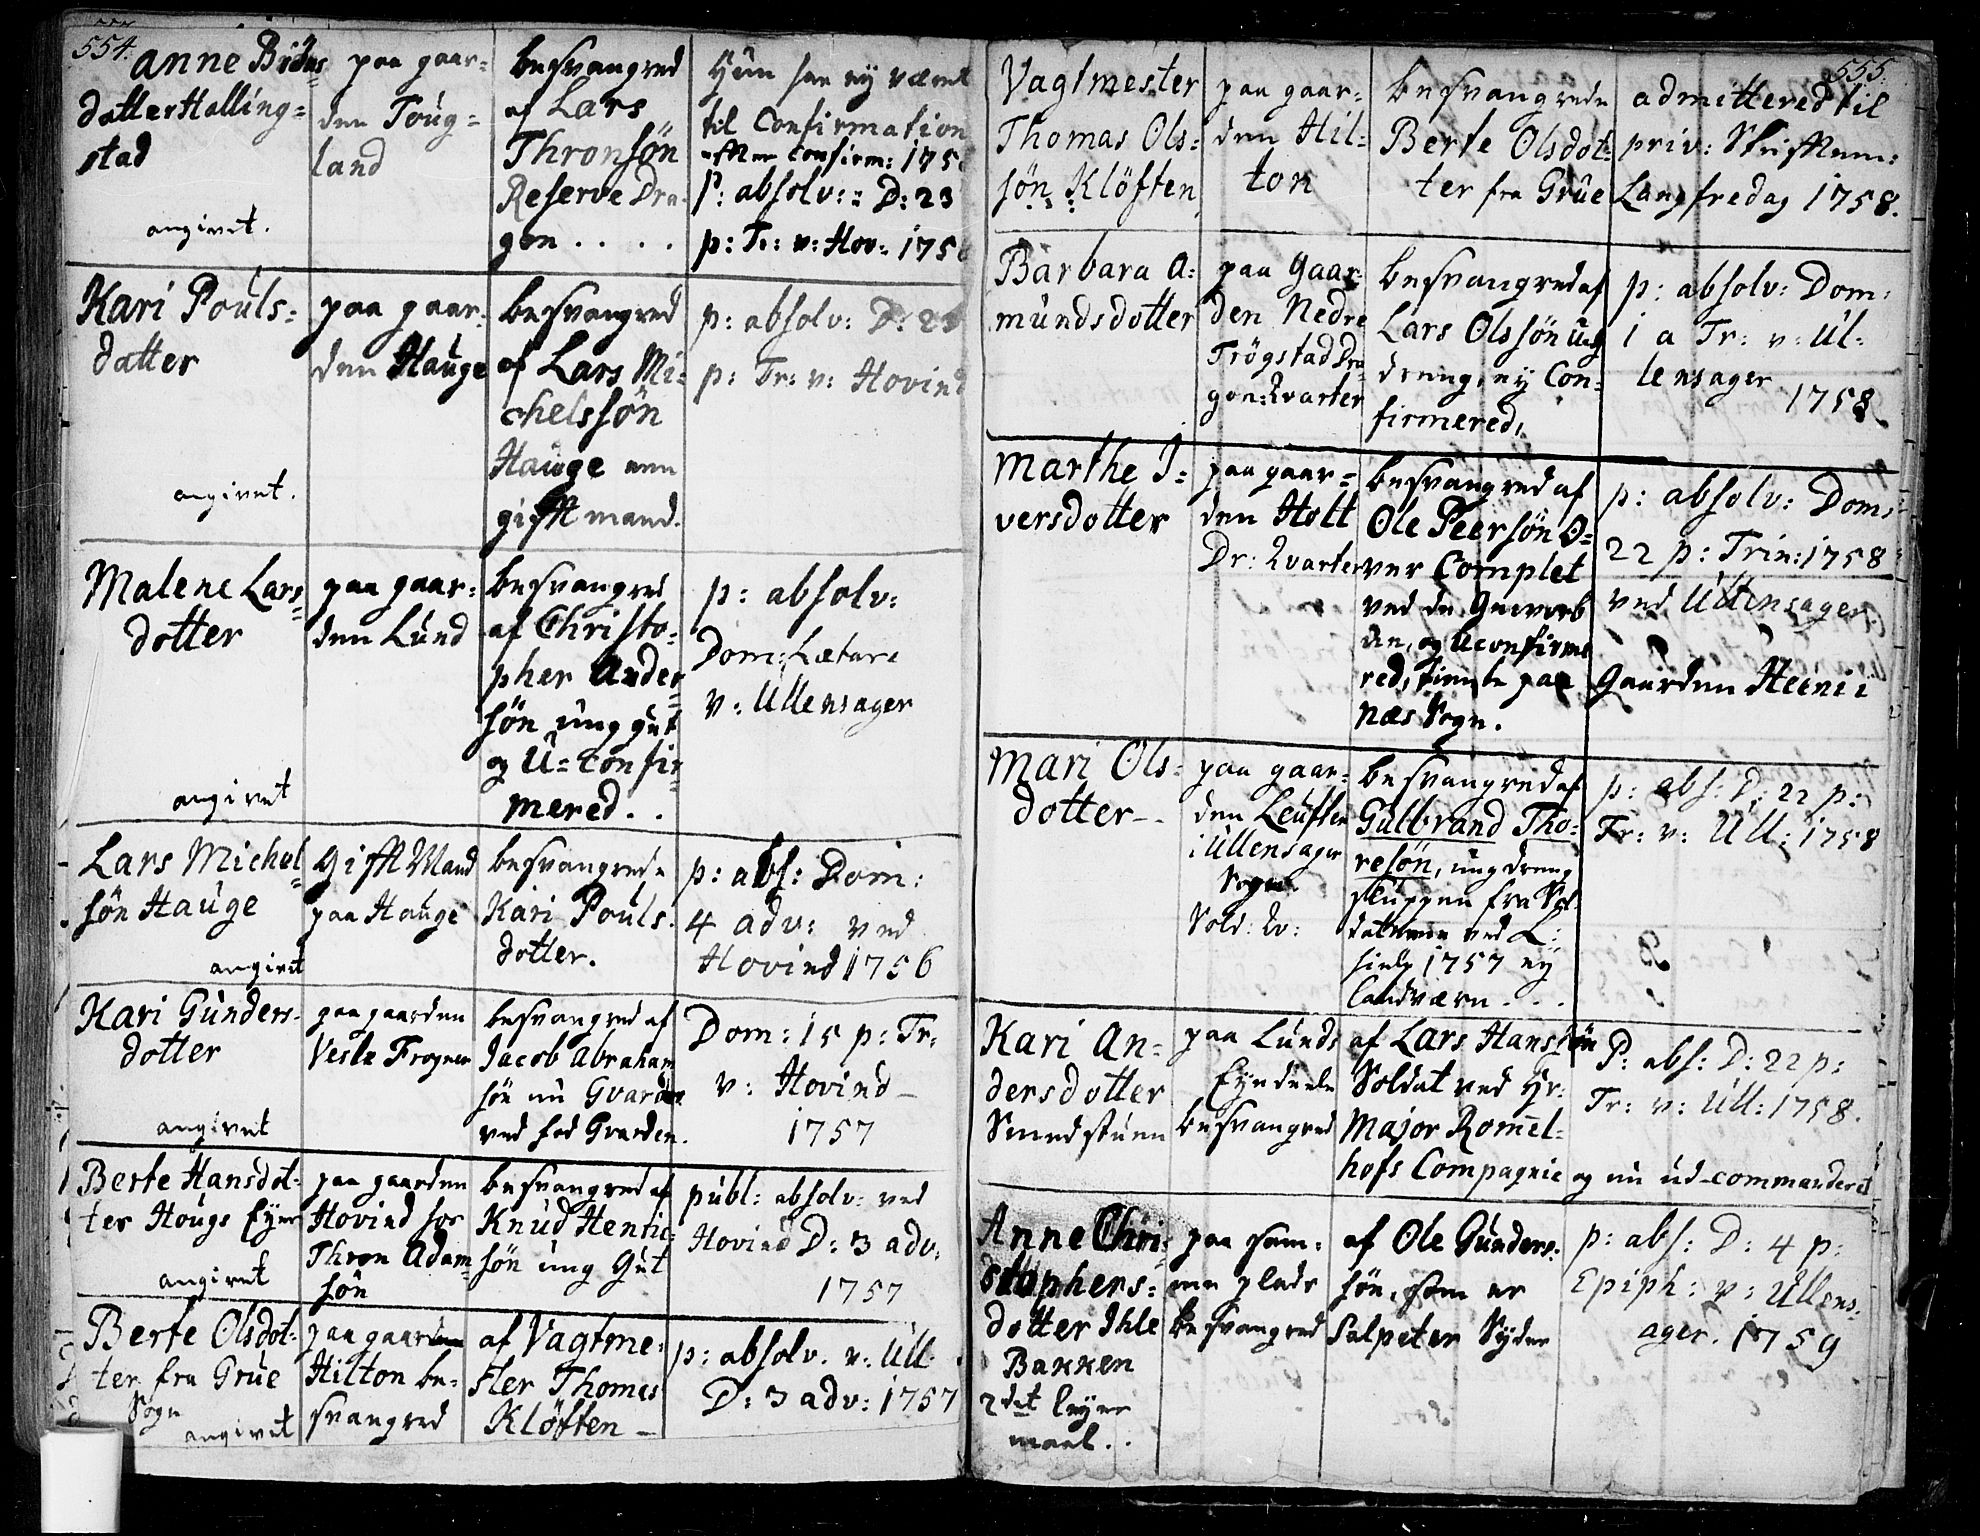 554.
Anne
dotter Halling=
stad
angivet.
paa gaar=
den Toug=
land
besvangred
af Lars
Thronsön
Reserve Dra-
gon . . . .
Hun har ey været
til Confirmation
confirm: 175
p: absolv: D: 23
p: Tr: v: Hov: 175
Kari Pouls=
datter
angivet.
paa gaar-
den Hauge
besvangred
af Lars Mi=
chelssön
Hauge een
gifft mand.
p: absolv: D: 23
p: Tr: v: Hovind
Malene Lars=
dotter
angivet
paa gaar=
den Lund
besvangred
af Christo=
pher Ander=
sön ung gut
og U=confir=
mered . .
p: absolv:
Dom: Lætare
v: Ullensager
Lars Michel=
sön Hauge
angivet
Gifft Mand
paa Hauge
besvangrede
Kari Pouls.
dotter.
p: abs: Dom:
4 adv: ved
Hovind 1756
Kari Gunders-
dotter
angivet
paa gaarden
Vesle Frogner
besvangred af
Jacob Abraham
sön nu Gvarder
ved fod Gvarden.
Dom: 15 p: Tr:
v: Hovind -
1757
Berte Hansdot=
ter Hougs Eyer
angivet
paa gaarden
Hovind hos
Thron Adam=
sön
besvangred af
Knud Henric=
sön ung Gut
publ: absolv: ved
Hovind D: 3 adv:
1757
Berte Olsdot=
ter fra Grue
Sogn
angivet
paa gaarden
Hilton be=
svangred
af Vagtme=
ster Thomas
Klöften -
p: absolv. v: Ull.
D: 3 adv: 1757
555.
Vagtmester
Thomas Ols=
sön Klöften
paa gaar=
den Hil=
ton
besvangrede
Berte Olsdot=
ter fra Grue
admittered til
priv: Skrifftem:
Langfredag 1758.
Barbara A=
mundsdotter
paa Gaar=
den Nedre
Trögstad Dra=
gon: Qvarter
besvangred af
Lars Olssön ung
dreng, ey Con=
firmered,
p: absolv: Dom:
1 a Tr: v: Ul=
lensager
1758.
Marthe I=
versdotter
paa gaar=
den Holt
Dr: Qvarter
besvangred af
Ole Peersön O=
ver Complet
ved de Geworb
den, og Uconfirme
red, tiente paa Gaarden Heini i
Næs Sogn.
p: absolv: Dom:
22 p: Trin: 1758
ved Ullensager
Mari Ols=
dotter - .
paa gaar=
den Leuften
i Ullensager
Sogn.
Sold: Qv:
besvangred af
Gulbrand Tho=
resön, ung dreng
sluppen fra Sol
datterne ved L:
hielp 1757 ey
Landværn . . .
p: abs: D: 22 p:
Tr: v: Ull: 1758
Kari An=
dersdotter
Smedstuen
paa Lunds
Eyendeele
besvangred
af Lars Hanssön
Soldat ved Hr:
Major Romel=
hofs Compagnie og nu ud-commanderet
P: abs: D: 22 p:
Tr: v: Ull: 1758.
Anne Chri=
stophers=
dotter Ihle
Bakken
2det leyer
maal . .
paa sam=
me plads
besvangred
af Ole Gunders-
sön, som er
Salpeter Syder
p: abs: D: 4 p:
Epiph: v: Ullens=
ager. 1759